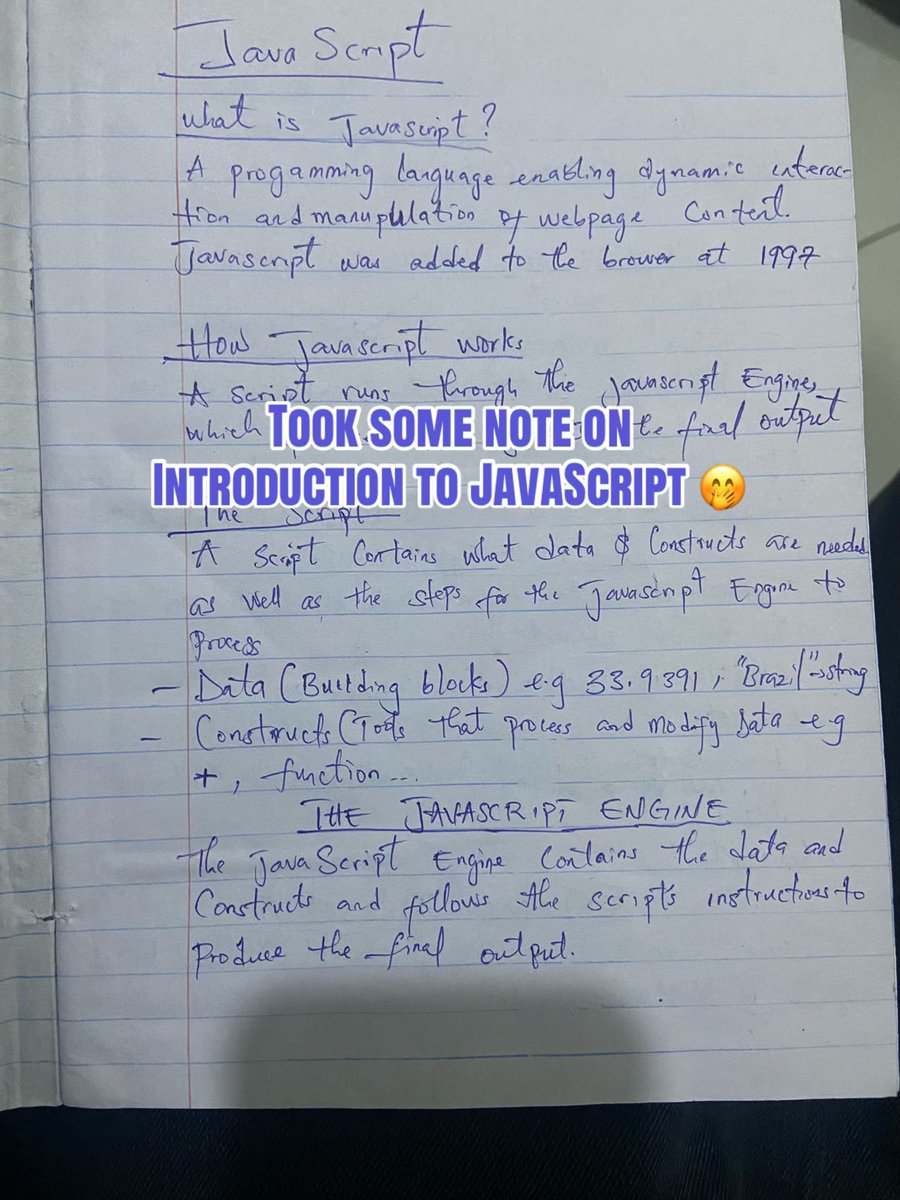 JavaScript
What is Javascript?
A progamming language enabling dynamic interac-
tion and manuplulation of webpage Content.
Javascript was added to the brower at 1997
How Javascript works
A script runs through the javascript Engine,
which the final output
TOOK SOME NOTE ON
INTRODUCTION TO JAVASCRIPT 🤭
The Script
A Script Contains what data & Constructs are needed
as well as the steps for the javascript Engine to
Process
- Data (Building blocks) e.g 33.9391, "Brazil"→string
- Constructs (Tools that process and modify Data e.g
+, function...
THE JAVASCRIPT ENGINE
The JavaScript Engine Contains the data and
Constructs and follows the script's instructions to
Produce the final output.